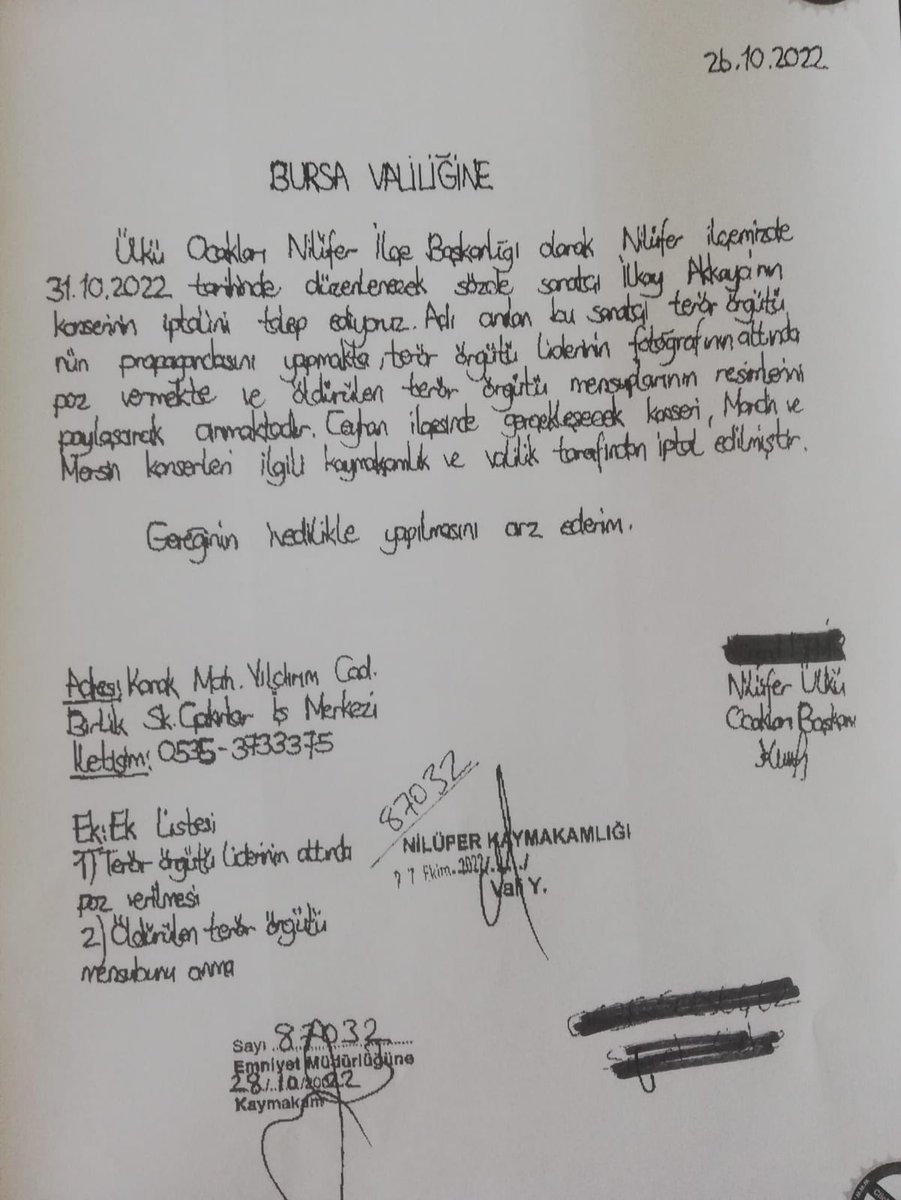 26.10.2022
BURSA VALİLİĞİNE
Ülkü Ocakları Nilüfer İlçe Başkanlığı olarak Nilüfer ilçemizde
31.10.2022 tarihinde düzenlenecek sözde sanatçı İlkay Akkaya'nın
konserinin iptalini talep ediyoruz. Adı anılan bu sanatçı terör örgütü
nün propagandasını yapmakta, terör örgütü liderinin fotoğrafının altında
poz vermekte ve öldürülen terör örgütü mensuplarının resimlerini
paylaşarak anmaktadır. Ceyhan ilçesinde gerçekleşecek konseri, Mardin ve
Mersin konserleri ilgili kaymakamlık ve valilik tarafından iptal edilmiştir.
Gereğinin ivedilikle yapılmasını arz ederim.
Nilüfer Ülkü
Ocakları Başkanı
Adres: Konak Mah. Yıldırım Cad.
Birlik Sk. Çakırlar İş Merkezi
İletişim: 0535-3733375
Ek: Ek Listesi
1) Terör örgütü liderinin altında
poz verilmesi
2) Öldürülen terör örgütü
mensubunu anma
87032
NİLÜFER KAYMAKAMLIĞI
27 Ekim.2022
Vali Y.
Sayı 87032
Emniyet Müdürlüğüne
28/10/2022
Kaymakam